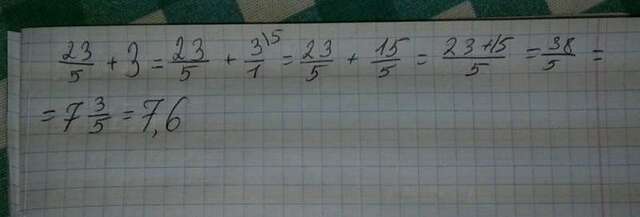 23/5 + 3 = 23/5 + 3\5/1 = 23/5 + 15/5 = 23+15/5 = 38/5 =
= 7 3/5 = 7,6